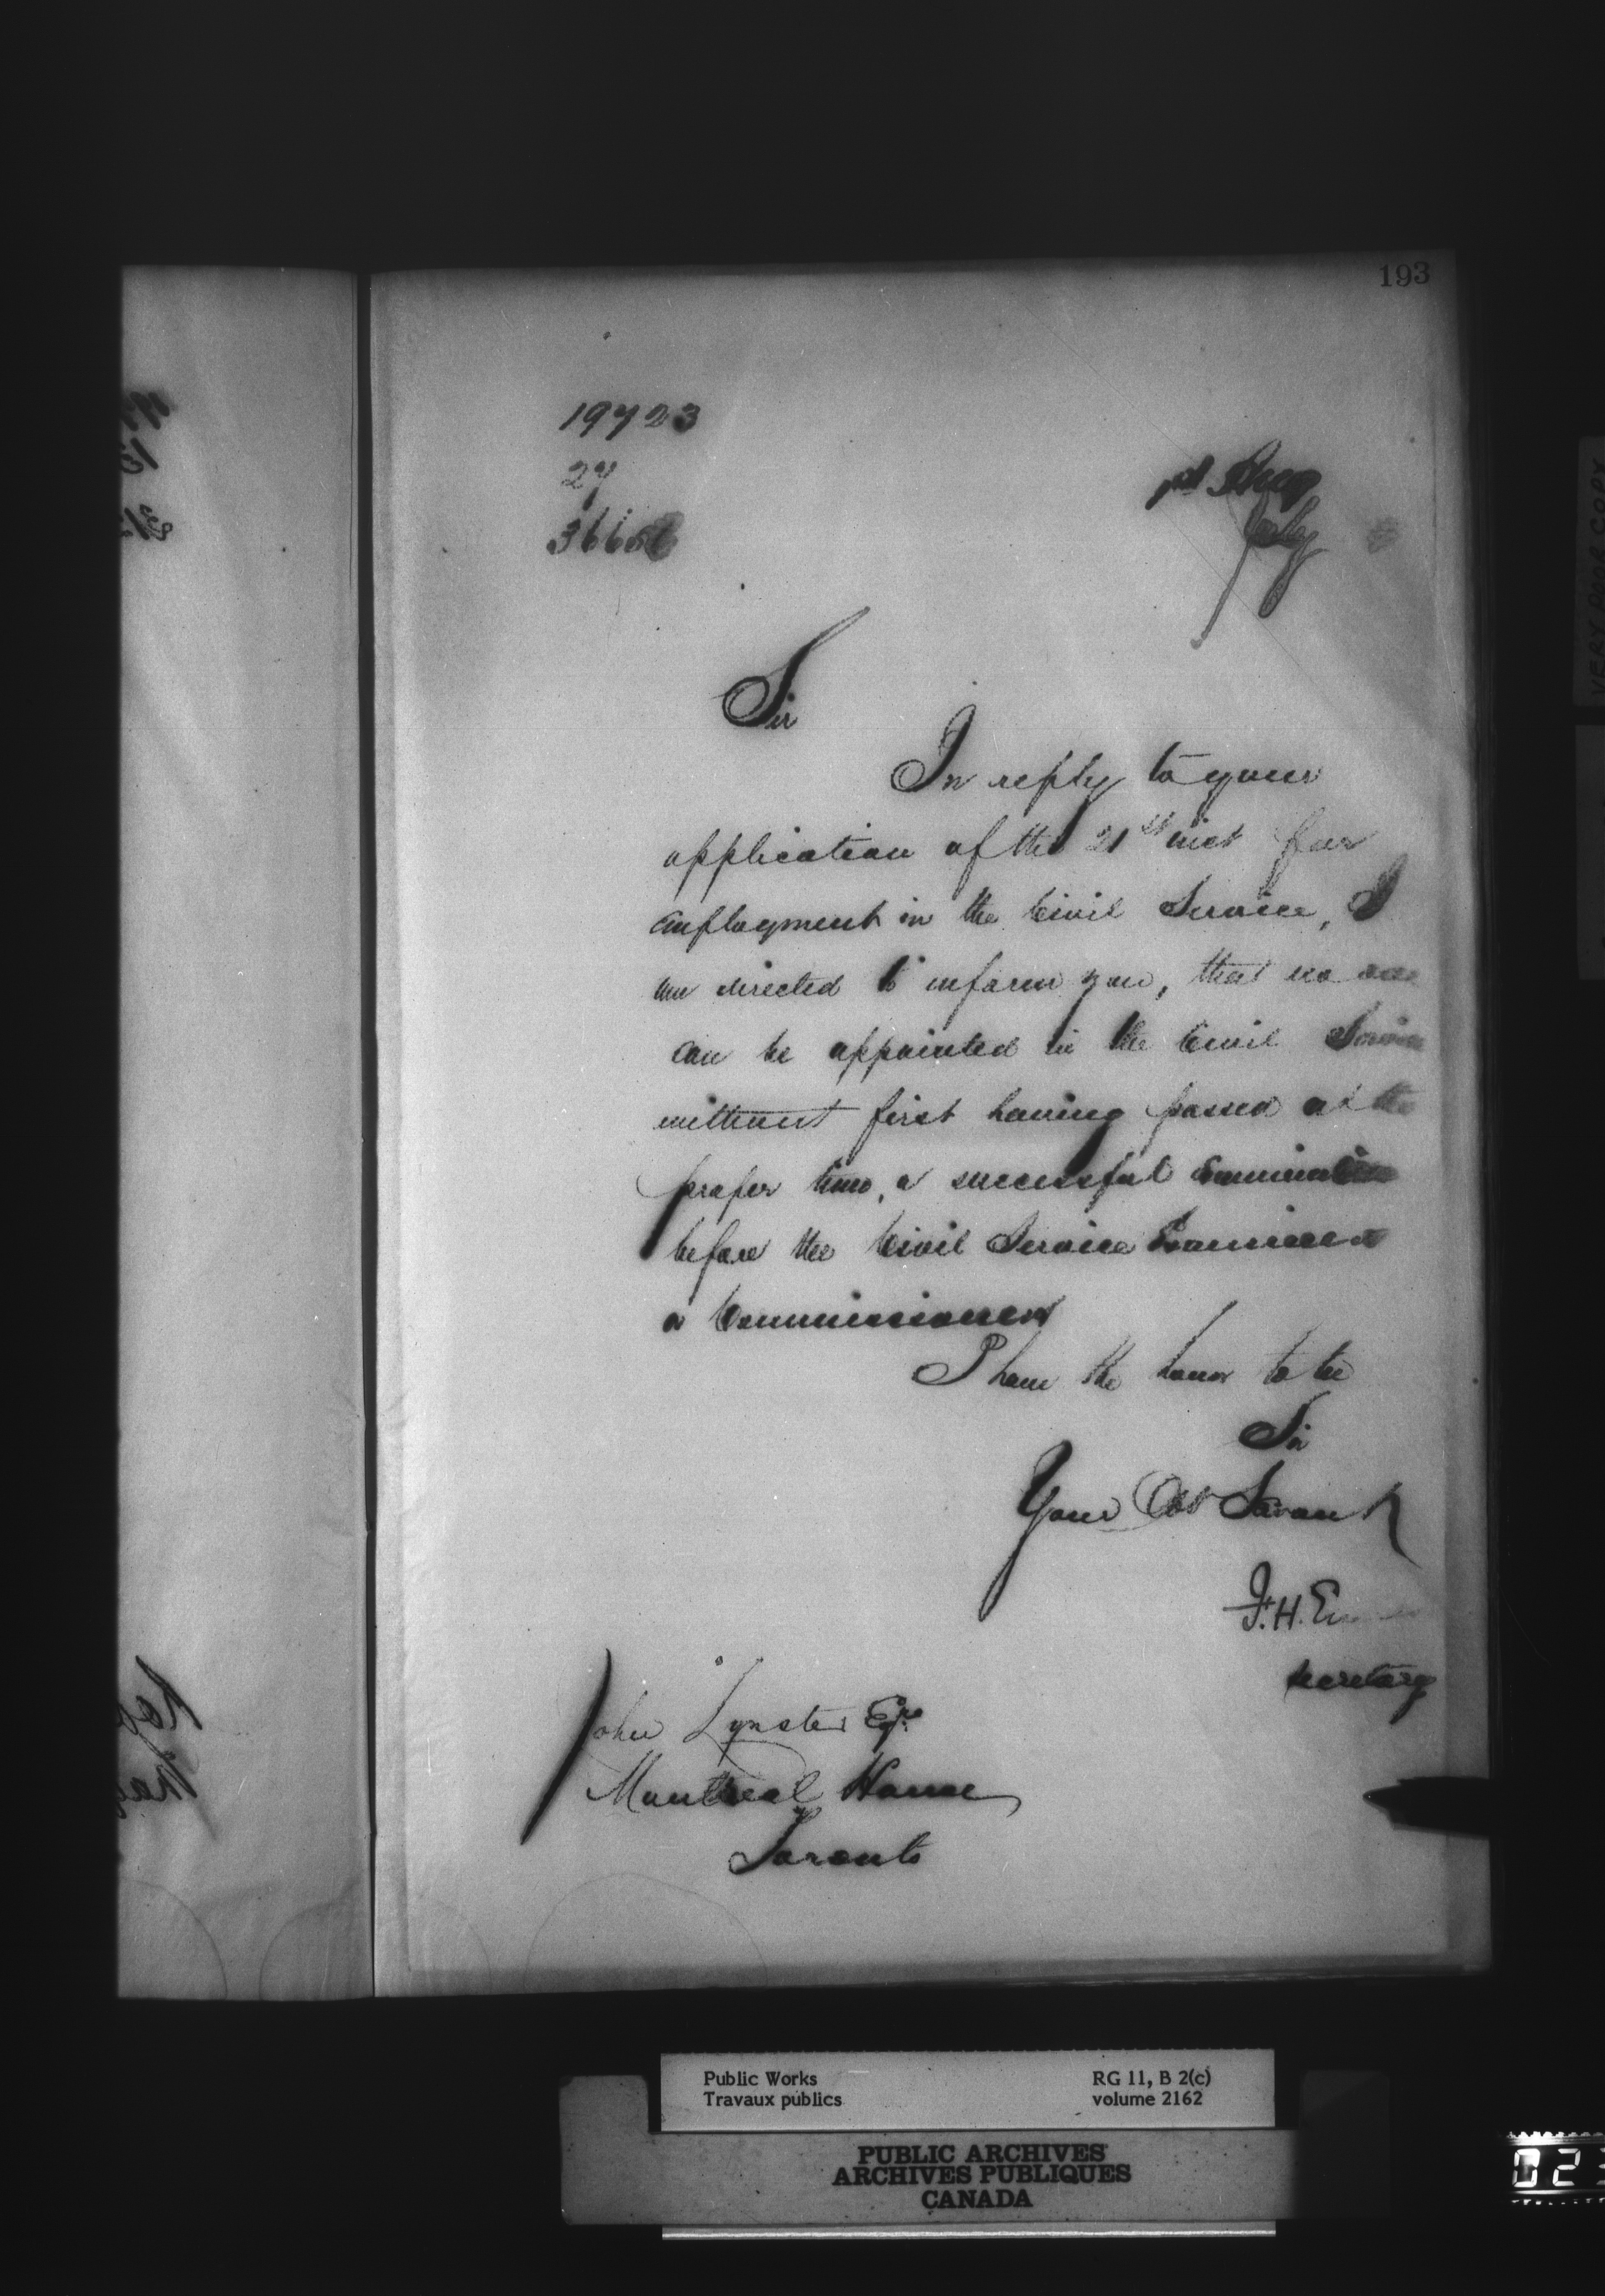 193
19723
27
Sir
In reply to your
application of the 21st inst for
employment in the Civil Service, I
am directed to inform you, that no one
can be appointed in the Civil Service
without first having passed at the
proper time, a successful Examination
before the Civil Service Examiners
or Commissioners
I have the honor to be
Sir
Your Obt Servant
F. H. En
Secretary
John Lynster Eqre
Montreal House
Toronto
Public Works
Travaux publics
RG 11, B 2(c)
volume 2162
PUBLIC ARCHIVES
ARCHIVES PUBLIQUES
CANADA
VERY POOR COPY
023